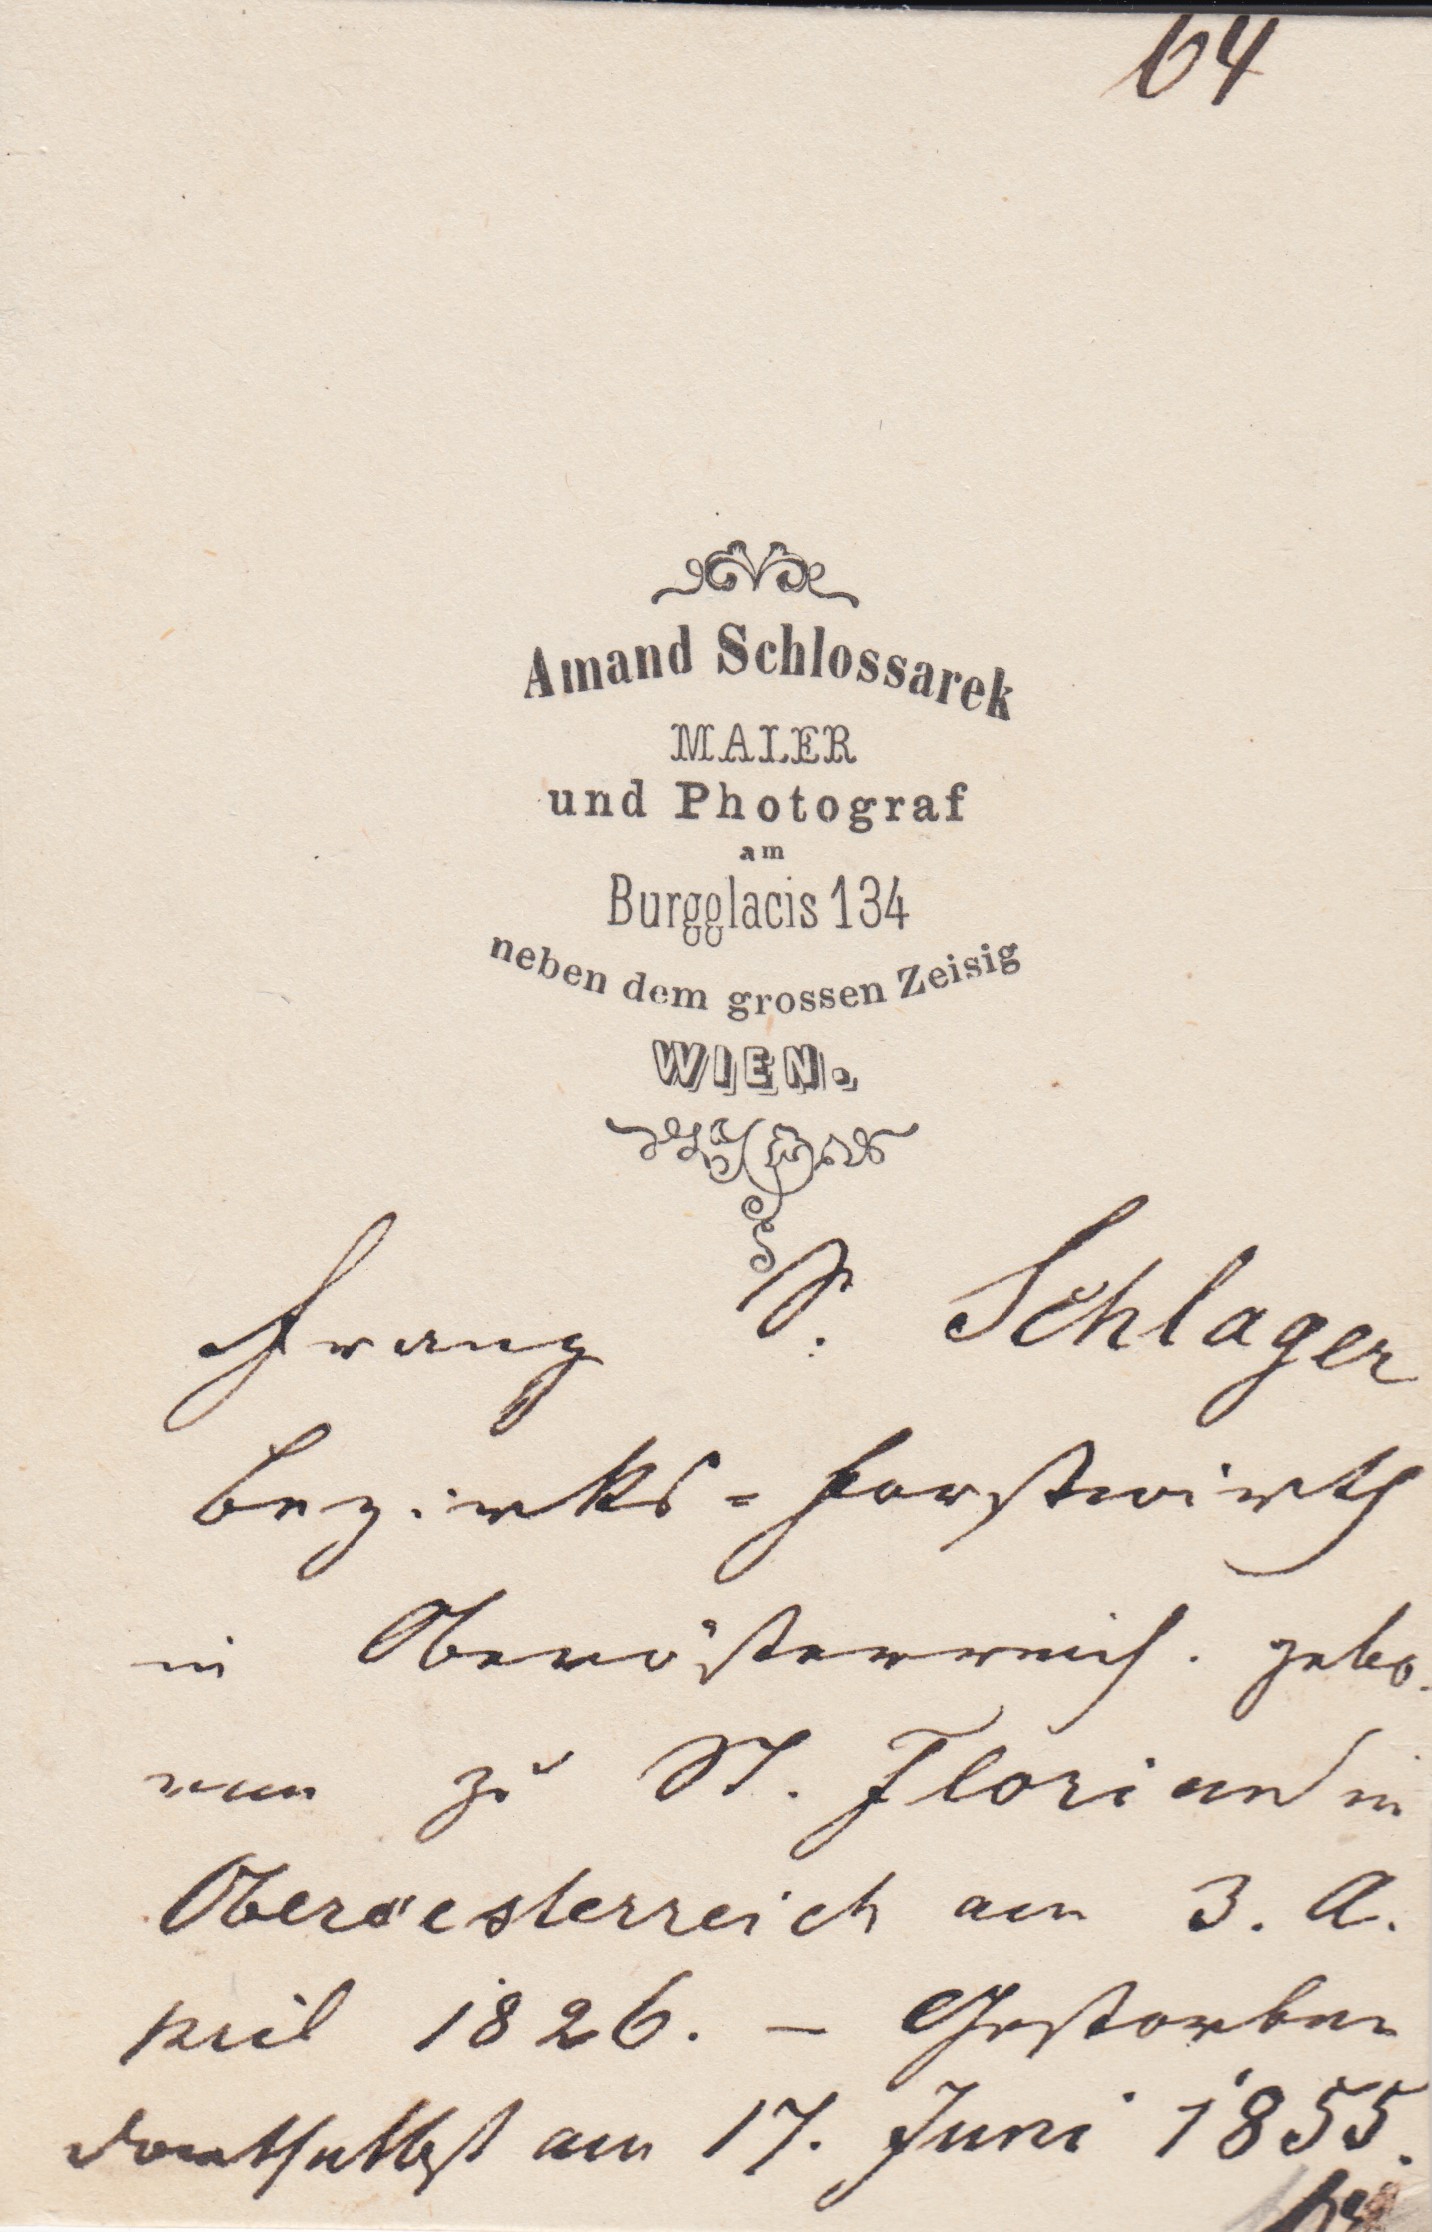 64
Amand Schlossarek
MALER
und Photograf
am
Burgglacis 134
neben dem grossen Zeisig
WIEN.
Franz S. Schlager
Bezirks=Forstwirth
in Oberösterreich. gebo.
ren zu St. Florian in
Oberoesterreich am 3. A.
pril 1826. — Gestorben
dortselbst am 17. Juni 1855.